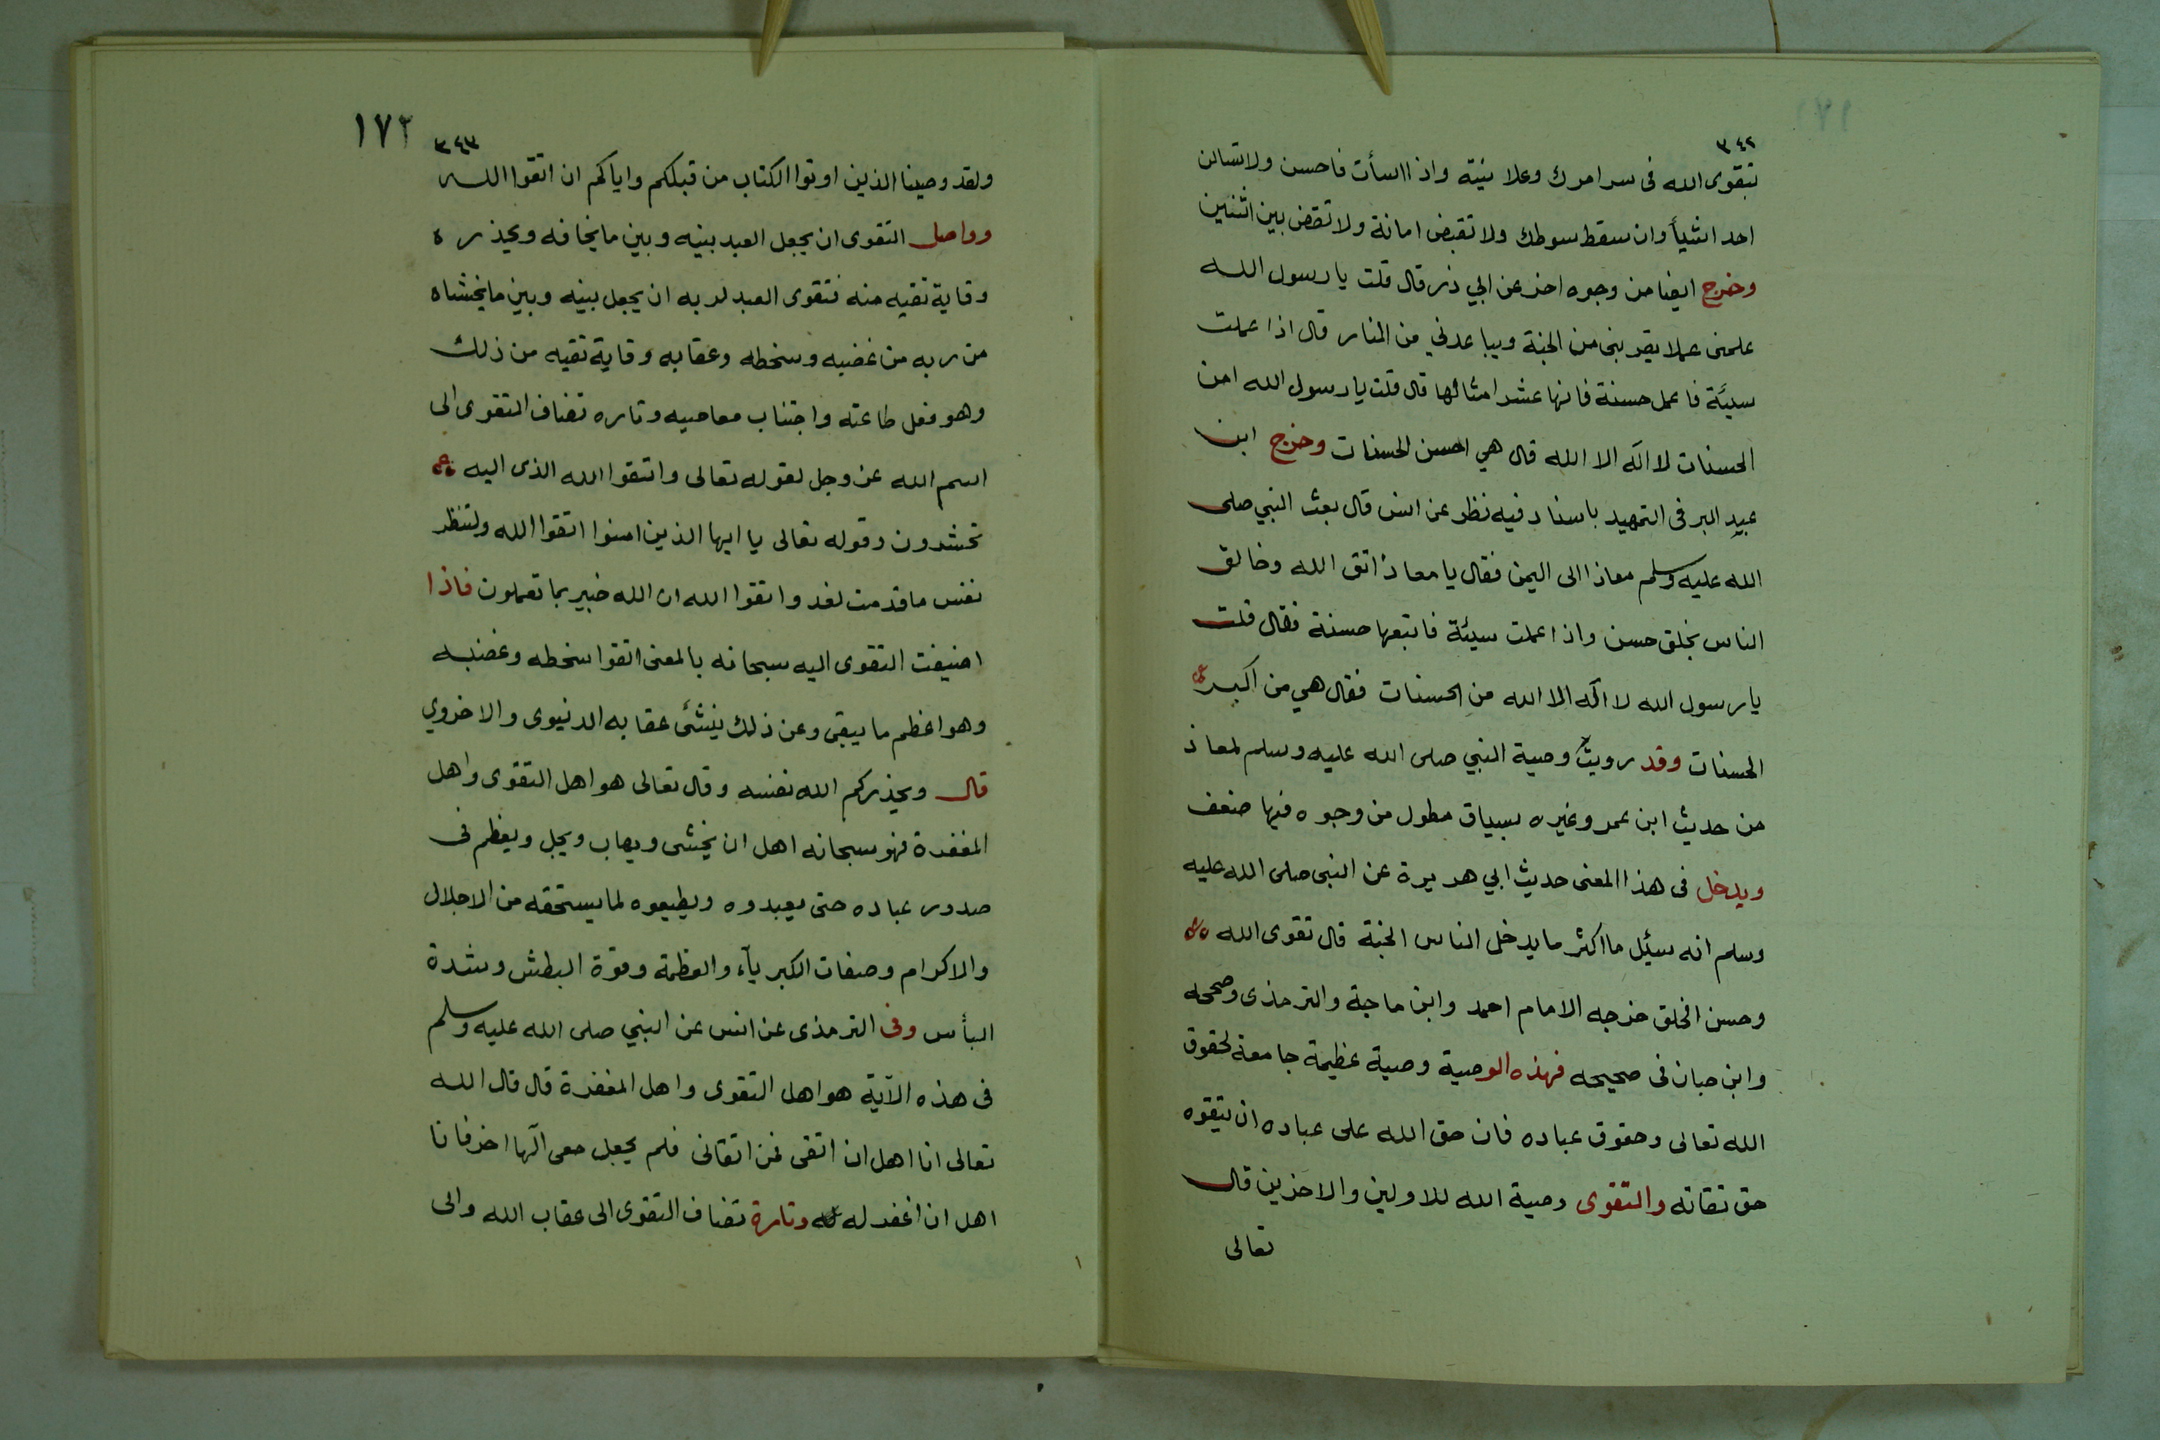 ٣٤٢
بتقوى الله فى سرامرك وعلانيته واذا اسأت فاحسن ولاتسالن
احدا شيأ وان سقط سوطك ولا تقبض امانة ولا تقض بين اثنين
وخرج ايضا من وجوه اخر عن ابي ذر قال قلت يا رسول الله
علمنى عملا يقربنى من الجنة ويباعدني من النار قال اذا عملت
سيئة فاعمل حسنة فانها عشر امثالها قال قلت يا رسول الله امن
الحسنات لا اله الا الله قال هي احسن الحسنات وخرج ابن
عبد البر فى التمهيد باسناد فيه نظر عن انس قال بعث النبي صلى
الله عليه وسلم معاذا الى اليمن فقال يا معاذ اتق الله وخالق
الناس بخلق حسن واذا عملت سيئة فاتبعها حسنة فقال قلت
يا رسول الله لا اله الا الله من الحسنات فقال هي من اكبر
الحسنات وقد رويت وصية النبي صلى الله عليه وسلم لمعاذ
من حديث ابن عمر وغيره بسياق مطول من وجوه فيها ضعف
ويدخل فى هذا المعنى حديث ابي هريرة عن النبى صلى الله عليه
وسلم انه سئل ما اكثر ما يدخل الناس الجنة قال تقوى الله
وحسن الخلق خرجه الامام احمد وابن ماجة والترمذى وصححه
وابن حبان فى صحيحه فهذه الوصية وصية عظيمة جامعة لحقوق
الله تعالى وحقوق عباده فان حق الله على عباده ان يتقوه
حق تقاته والتقوى وصية الله للاولين والاخرين قال
تعالى
١٧٢ ٣٤٣
ولقد وصينا الذين اوتوا الكتاب من قبلكم واياكم ان اتقوا الله
وواصل التقوى ان يجعل العبد بينه وبين ما يخافه ويحذره
وقاية تقيه منه فتقوى العبد لربه ان يجعل بينه وبين ما يخشاه
من ربه من غضبه وسخطه وعقابه وقاية تقيه من ذلك
وهو فعل طاعته واجتناب معاصيه وتاره تضاف التقوى الى
اسم الله عز وجل لقوله تعالى واتقوا الله الذى اليه
تحشرون وقوله تعالى يا ايها الذين امنوا اتقوا الله ولتنظر
نفس ما قدمت لغد واتقوا الله ان الله خبير بما تعملون فاذا
اضيفت التقوى اليه سبحانه بالمعنى اتقوا سخطه وغضبه
وهو اعظم ما يتقى وعن ذلك ينشئ عقابه الدنيوى والاخروي
قال ويحذركم الله نفسه وقال تعالى هو اهل التقوى واهل
المغفرة فهو سبحانه اهل ان يخشى ويهاب ويجل ويعظم فى
صدور عباده حتى يعبدوه ويطيعوه لما يستحقه من الاجلال
والاكرام وصفات الكبريآء والعظمة وقوة البطش وشدة
البأس وفى الترمذى عن انس عن النبي صلى الله عليه وسلم
فى هذه الآية هو اهل التقوى واهل المغفرة قال قال الله
تعالى انا اهل ان اتقى فمن اتقانى فلم يجعل معى آلها اخر فانا
اهل ان اغفر له وتارة تضاف التقوى الى عقاب الله والى